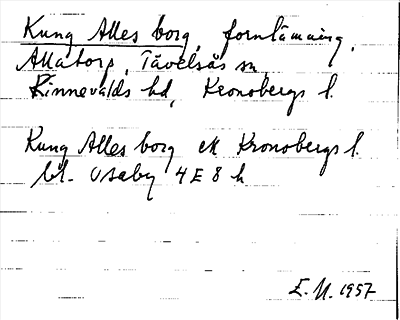 Kung Alles borg, fornlämning,
Allatorp, Tävelsås sn,
Kinnevalds hd, Kronobergs l.
Kung Alles borg ek Kronobergs l.
bl. Osaby 4 E 8 h
E. N. 1957